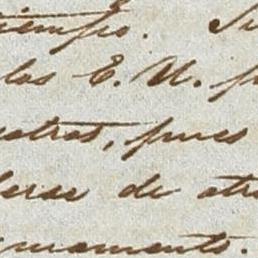 tiempo. Su
las E. U. p
uestras, pues
berse de otr
armamento.